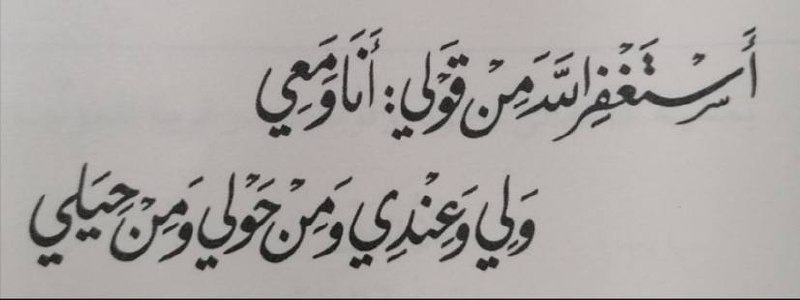 أَسْتَغْفِرُ اللَّهَ مِنْ قَوْلِي: أَنَا وَمَعِي
وَلِي وَعِنْدِي وَمِنْ حَوْلِي وَمِنْ حِيَلِي